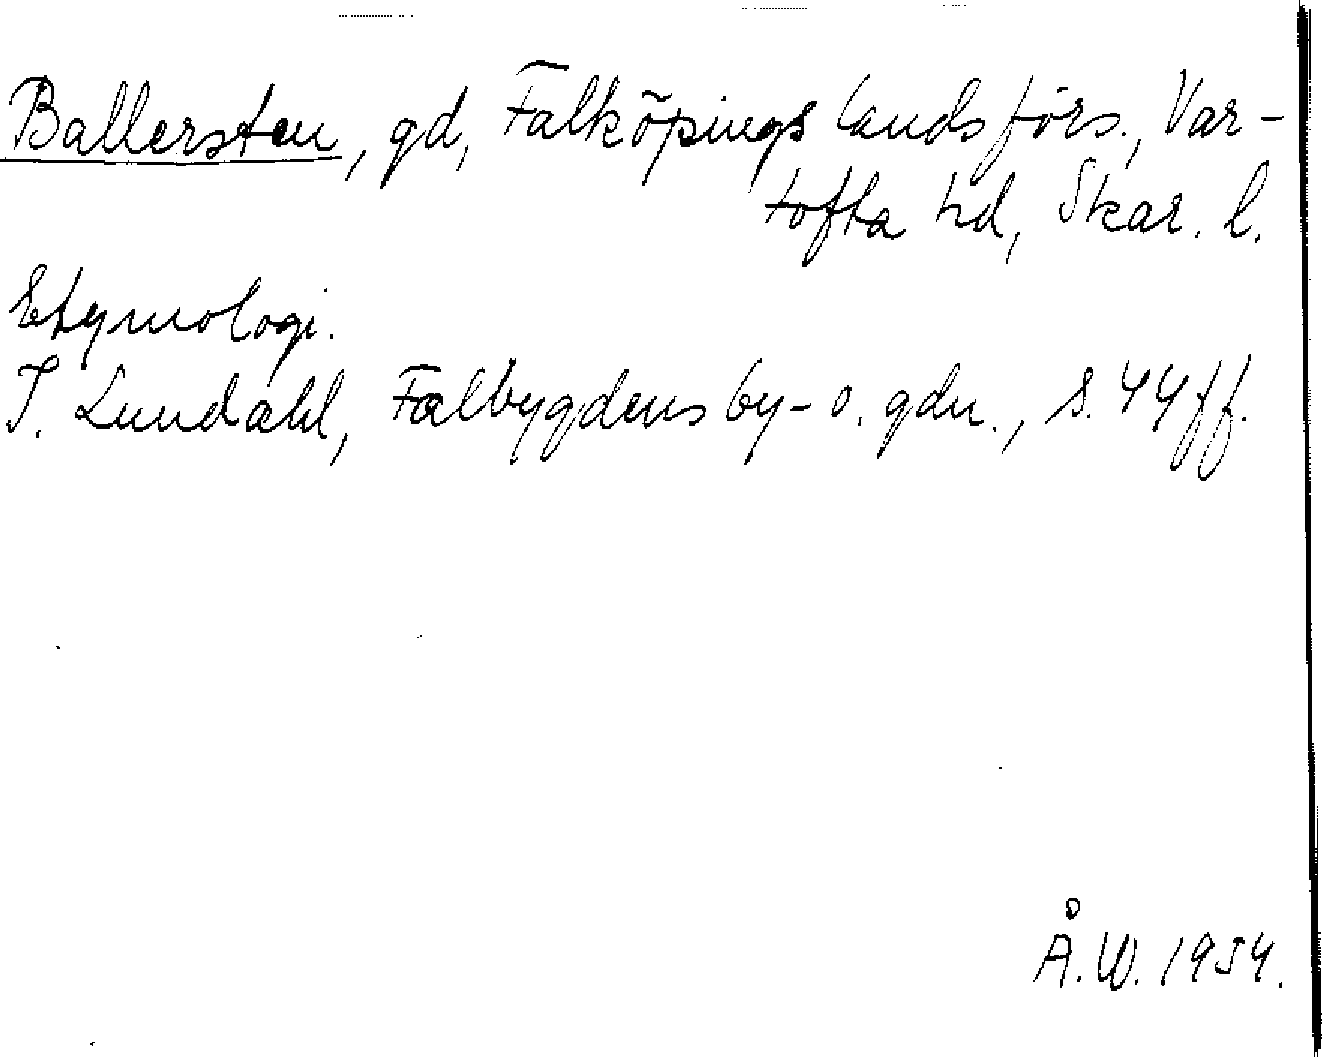 Ballersten, gd, Falköpings landsförs., Var-
tofta hd, Skar. l.
Etymologi.
I. Lundahl, Falbygdens by- o. gdn., s. 44 ff.
Å.W. 1954.